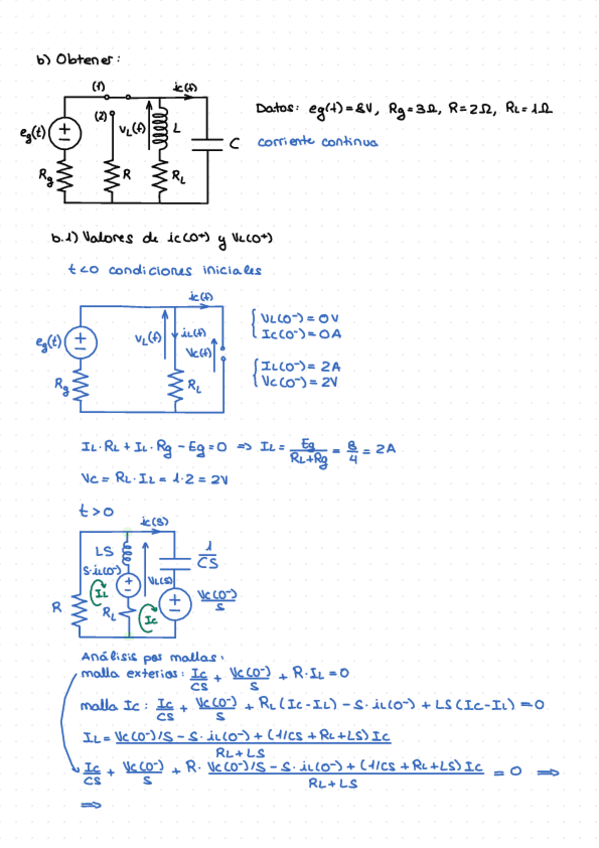 b) Obtener:
(1) ic(t)
(2) vL(t) L C
eg(t)
Rg R RL
Datos: eg(t) = 8V, Rg = 3Ω, R = 2Ω, RL = 1Ω
corriente continua
b.1) Valores de ic(0+) y VL(0+)
t<0 condiciones iniciales
ic(t)
eg(t) vL(t) iL(t)
Vc(t)
Rg RL
VL(0-) = 0V
Ic(0-) = 0A
IL(0-) = 2A
Vc(0-) = 2V
IL·RL + IL·Rg - Eg = 0 => IL = Eg/(RL+Rg) = 8/4 = 2A
Vc = RL·IL = 1·2 = 2V
t>0
ic(s)
LS 1/CS
S·iL(0-)
VL(s) Vc(0-)/S
IL
R RL Ic
Análisis por mallas:
malla exterior: Ic/CS + Vc(0-)/S + R·IL = 0
malla Ic: Ic/CS + Vc(0-)/S + RL(Ic-IL) - S·iL(0-) + LS(Ic-IL) = 0
IL = (Vc(0-)/S - S·iL(0-) + (1/CS + RL + LS) Ic)/(RL + LS)
Ic/CS + Vc(0-)/S + R· (Vc(0-)/S - S·iL(0-) + (1/CS + RL + LS) Ic)/(RL + LS) = 0 =>
=>